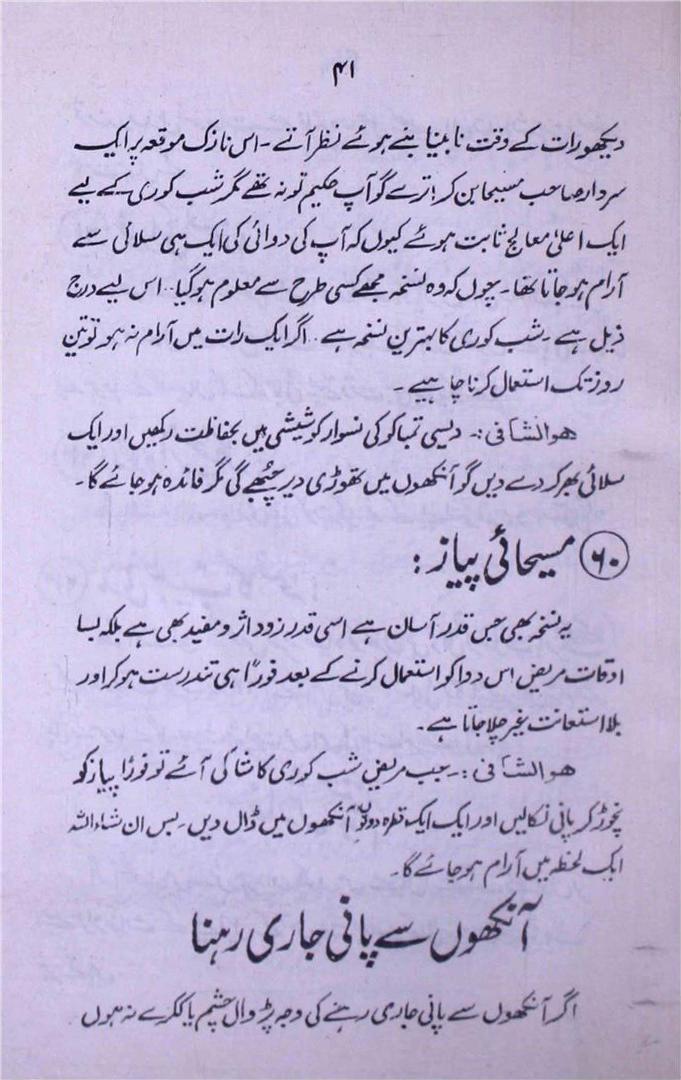 ۴۱
دیکھو رات کے وقت نابینا بنے ہوئے نظر آتے ۔ اس نازک موقعہ پر ایک
سردار صاحب مسیحا بن کر اترے گو آپ حکیم تو نہ تھے مگر شب کوری کے لیے
ایک اعلیٰ معالج ثابت ہوئے کیوں کہ آپ کی دوائی کی ایک ہی سلائی سے
آرام ہو جاتا تھا ۔ چوں کہ وہ نسخہ مجھے کسی طرح سے معلوم ہو گیا ۔ اس لیے درج
ذیل ہے ۔ شب کوری کا بہترین نسخہ ہے ۔ اگر ایک رات میں آرام نہ ہو تو تین
روز تک استعمال کرنا چاہیے ۔
ھوالشافی :۔ دیسی تمباکو کی نسوار کو شیشی میں بحفاظت رکھیں اور ایک
سلائی بھر کر دے دیں گو آنکھوں میں تھوڑی دیر چبھے گی مگر فائدہ ہو جائے گا ۔
۶۰ مسیحائی پیاز :
یہ نسخہ بھی جس قدر آسان ہے اسی قدر زود اثر و مفید بھی ہے بلکہ بسا
اوقات مریض اس دوا کو استعمال کرنے کے بعد فوراً ہی تندرست ہو کر اور
بلا استعانت غیر چلا جاتا ہے ۔
ھوالشافی :۔ جب مریض شب کوری کا شاکی آئے تو فوراً پیاز کو
نچوڑ کر پانی نکالیں اور ایک ایک قطرہ دونوں آنکھوں میں ڈال دیں ۔ بس ان شاء اللہ
ایک لحظہ میں آرام ہو جائے گا ۔
آنکھوں سے پانی جاری رہنا
اگر آنکھوں سے پانی جاری رہنے کی وجہ پڑوال چشم یا ککرے نہ ہوں